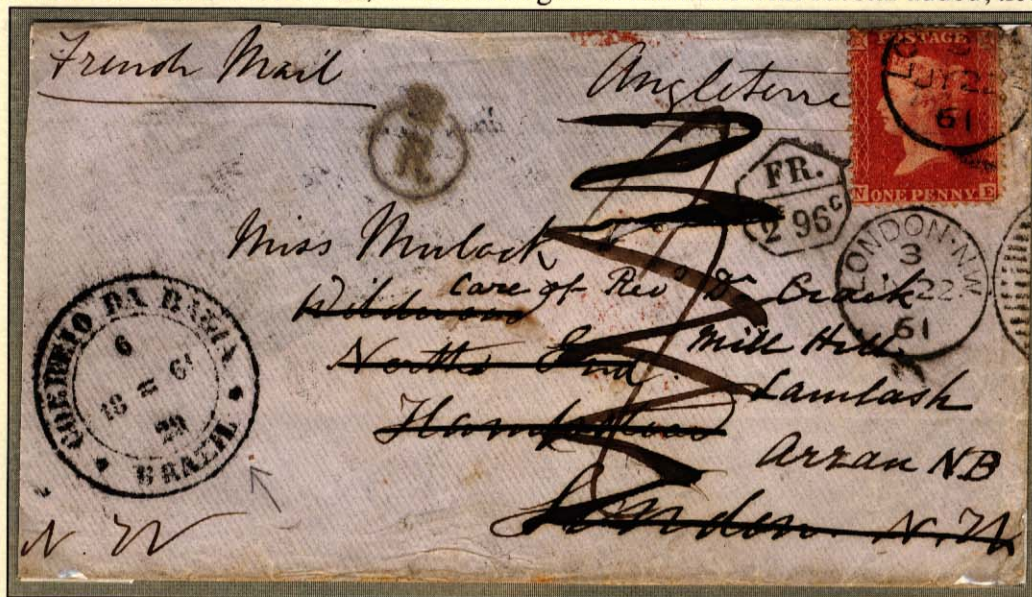 French Mail
Angleterre
R
POSTAGE
JY 22
61
N ONE PENNY E
FR.
2F 96c
LONDON·N.W
3
JY 22
61
Miss Mulock
Care of Rev Dr Craik
Wildwood
Mill Hill
North End
Lamlash
Hampstead
Arran NB
London. N.W
CORREIO DA BAHIA
6
61
BRAZIL
N. W